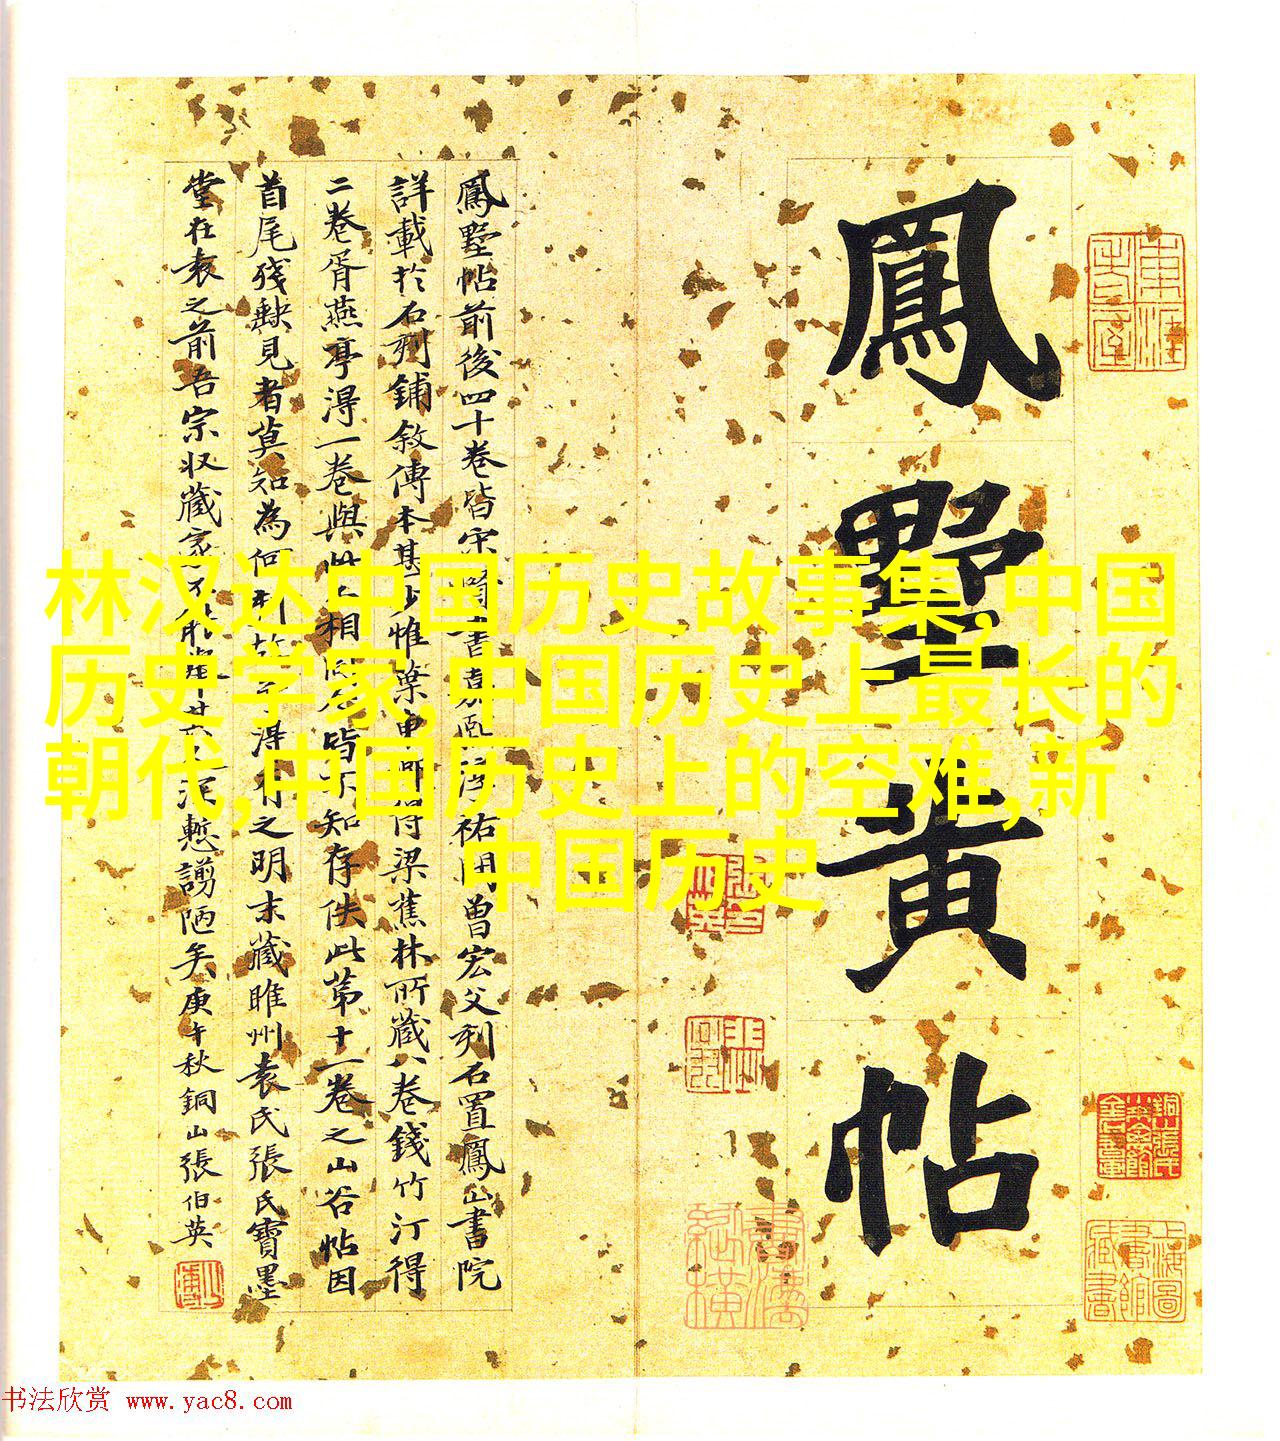 鳳墅黄帖
鳳墅帖前後四十卷皆宋賢書嘉熙淳祐間曾宏父刻石置鳳山書院
詳載於石刻鋪敘傳本甚少惟葉申薌得梁蕉林所藏八卷錢竹汀得
二卷胥燕亭得一卷與此上相同名皆不知存佚此第十一卷之山谷帖因
首尾殘缺見者莫知為何刻故得有之明末藏睢州袁氏張氏寶墨
堂在袁之前吾宗收藏家不能深慙謭陋矣庚午秋銅山張伯英
林汉达中国历史故事集,中国
历史学家,中国历史上最长的
朝代,中国历史上的空难,新
中国历史
上海圖書館藏書
书法欣赏 www.yac8.com